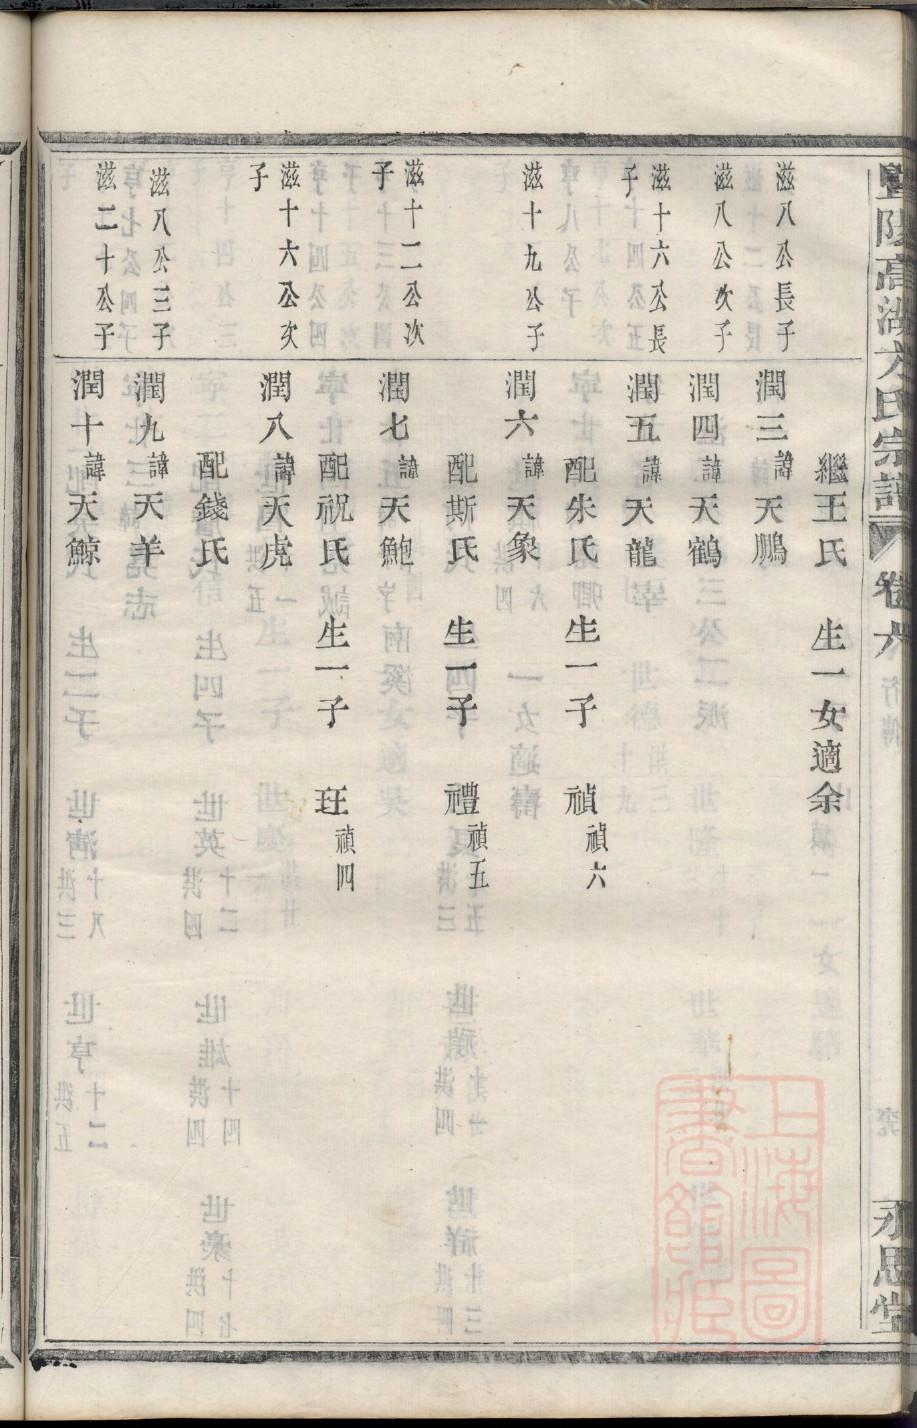 暨陽高湖方氏宗譜 卷六 行傳 永思堂
繼王氏 生一女適余
滋八公長子
潤三諱天鵬
滋八公次子
潤四諱天鶴
滋十六公長子
潤五諱天龍
配朱氏 生一子 禎禎六
滋十九公子
潤六諱天象
配斯氏 生一子 禮禎五
滋十二公次子
潤七諱天鮑
配祝氏 生一子 玨禎四
滋十六公次子
潤八諱天虎
配錢氏
滋八公三子
潤九諱天羊
滋二十公子
潤十諱天鯨
上海圖書館藏